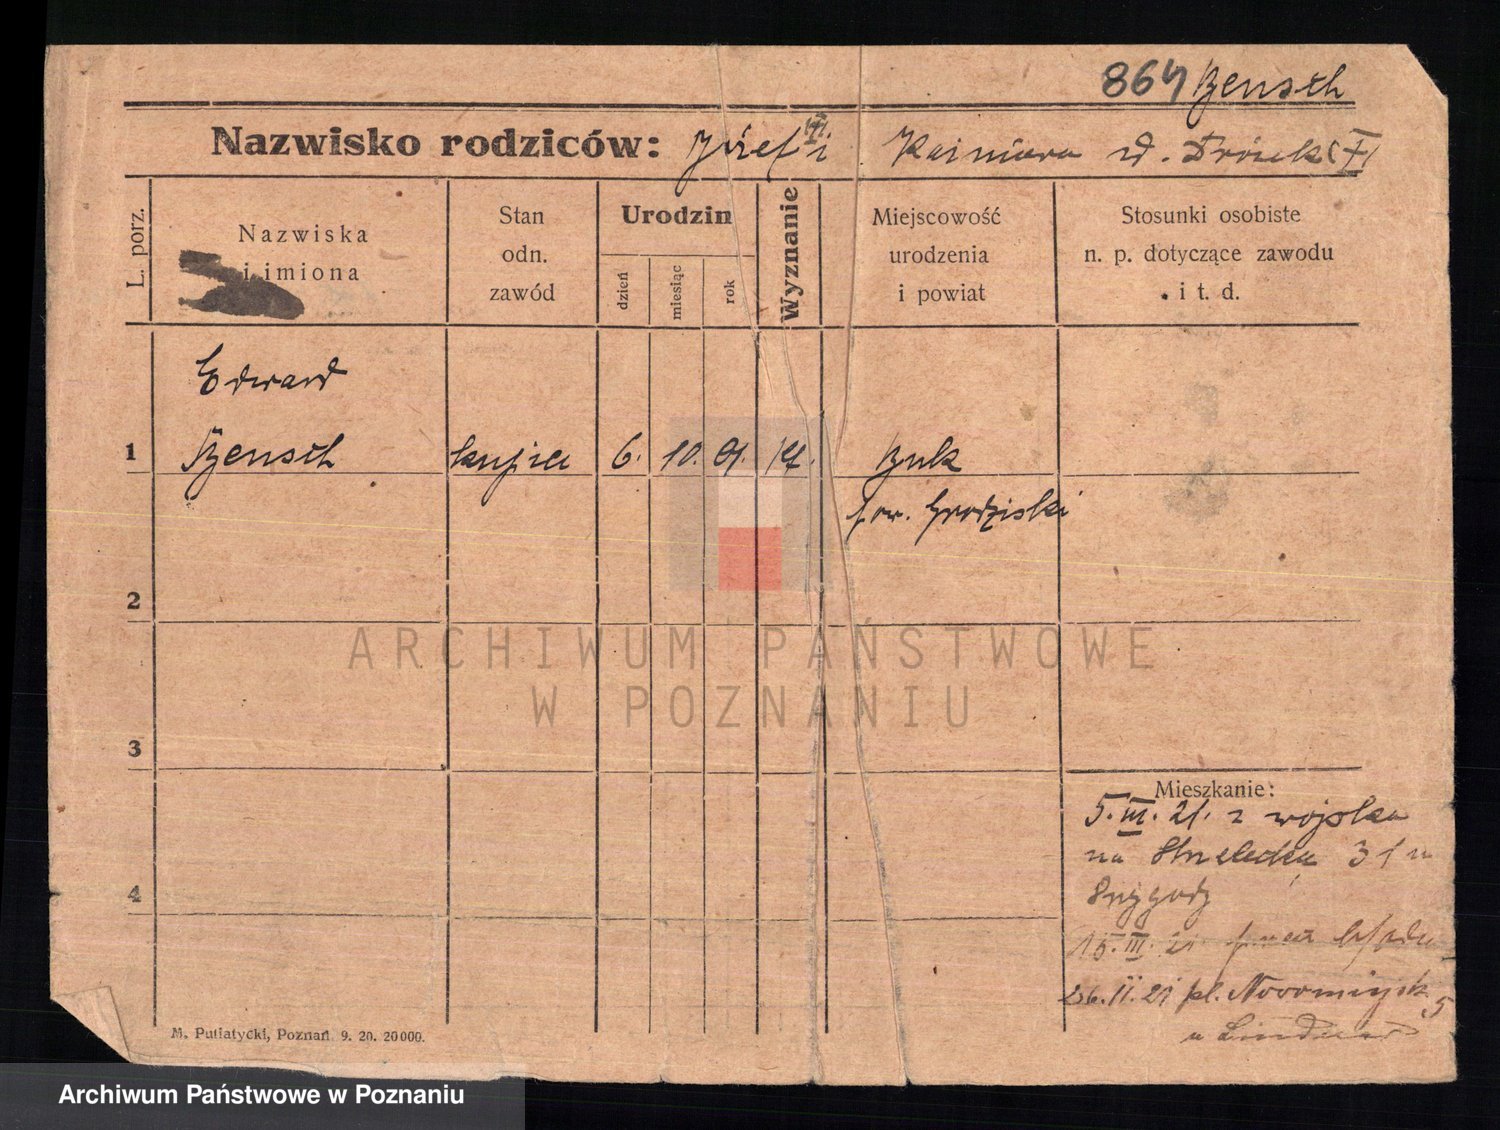 864 Bensch
Nazwisko rodziców: Józef i Kaimiera
L. porz.
Nazwiska
i imiona
Stan
odn.
zawód
Urodzin
dzień
miesiąc
rok
Wyznanie
Miejscowość
urodzenia
i powiat
Stosunki osobiste
n. p. dotyczące zawodu
i t. d.
Edward
1 Bensch kupiec 6. 10. 01. kt. Buk
pow. Grodziski
2
ARCHIWUM PAŃSTWOWE
W POZNANIU
3
Mieszkanie:
5.III.21. z wojska
na Strzelecka 31 u
4
15.III.21
26.II.21 pl. Nowomiejsk 5
u
M. Putiatycki, Poznań. 9. 20. 20000.
Archiwum Państwowe w Poznaniu